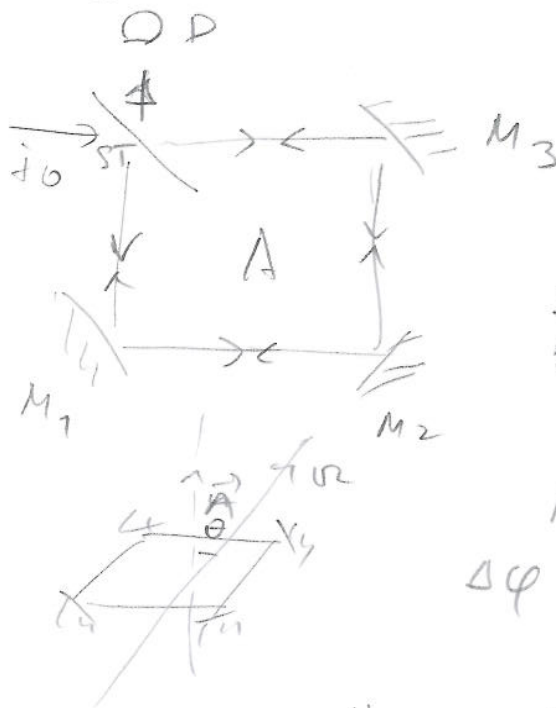 D
j0
ST
M3
A
M1
M2
A
θ
Δφ